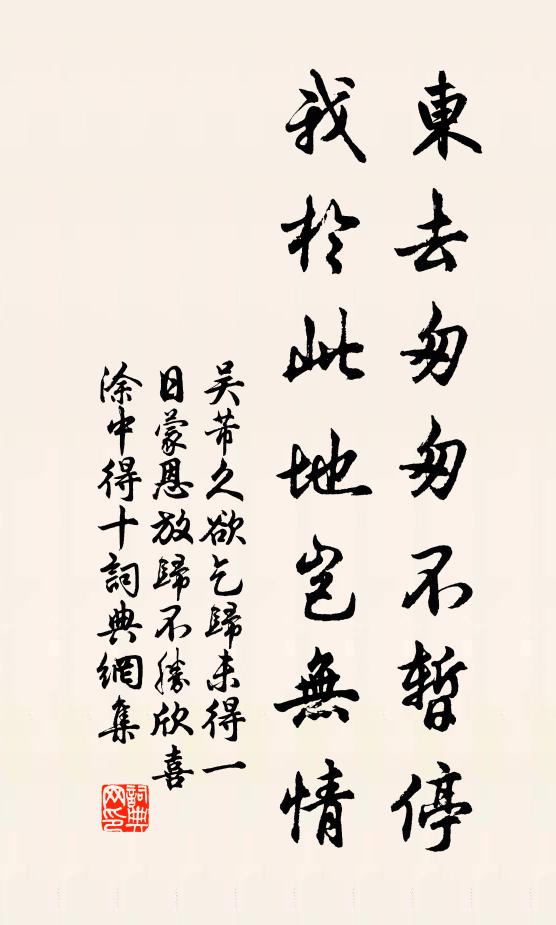 東去匆匆不暫停
我於此地豈無情
吴芾久欲乞歸未得一
日蒙恩放歸不勝欣喜
涂中得十詞典網集
詞典
网印